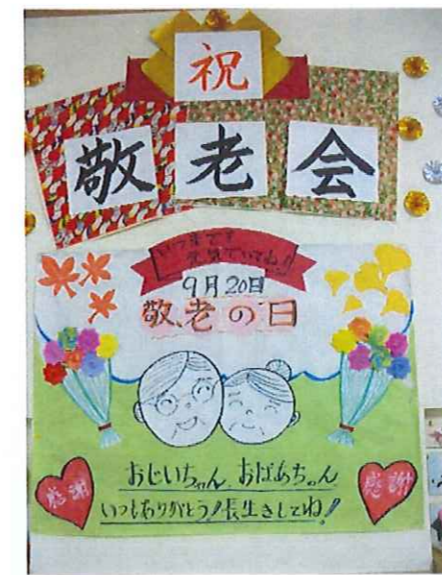 祝
敬老会
いつまでも
元気でいてね!!
9月20日
敬老の日
おじいちゃん、おばあちゃん
いつもありがとう!長生きしてね!
感謝
感謝